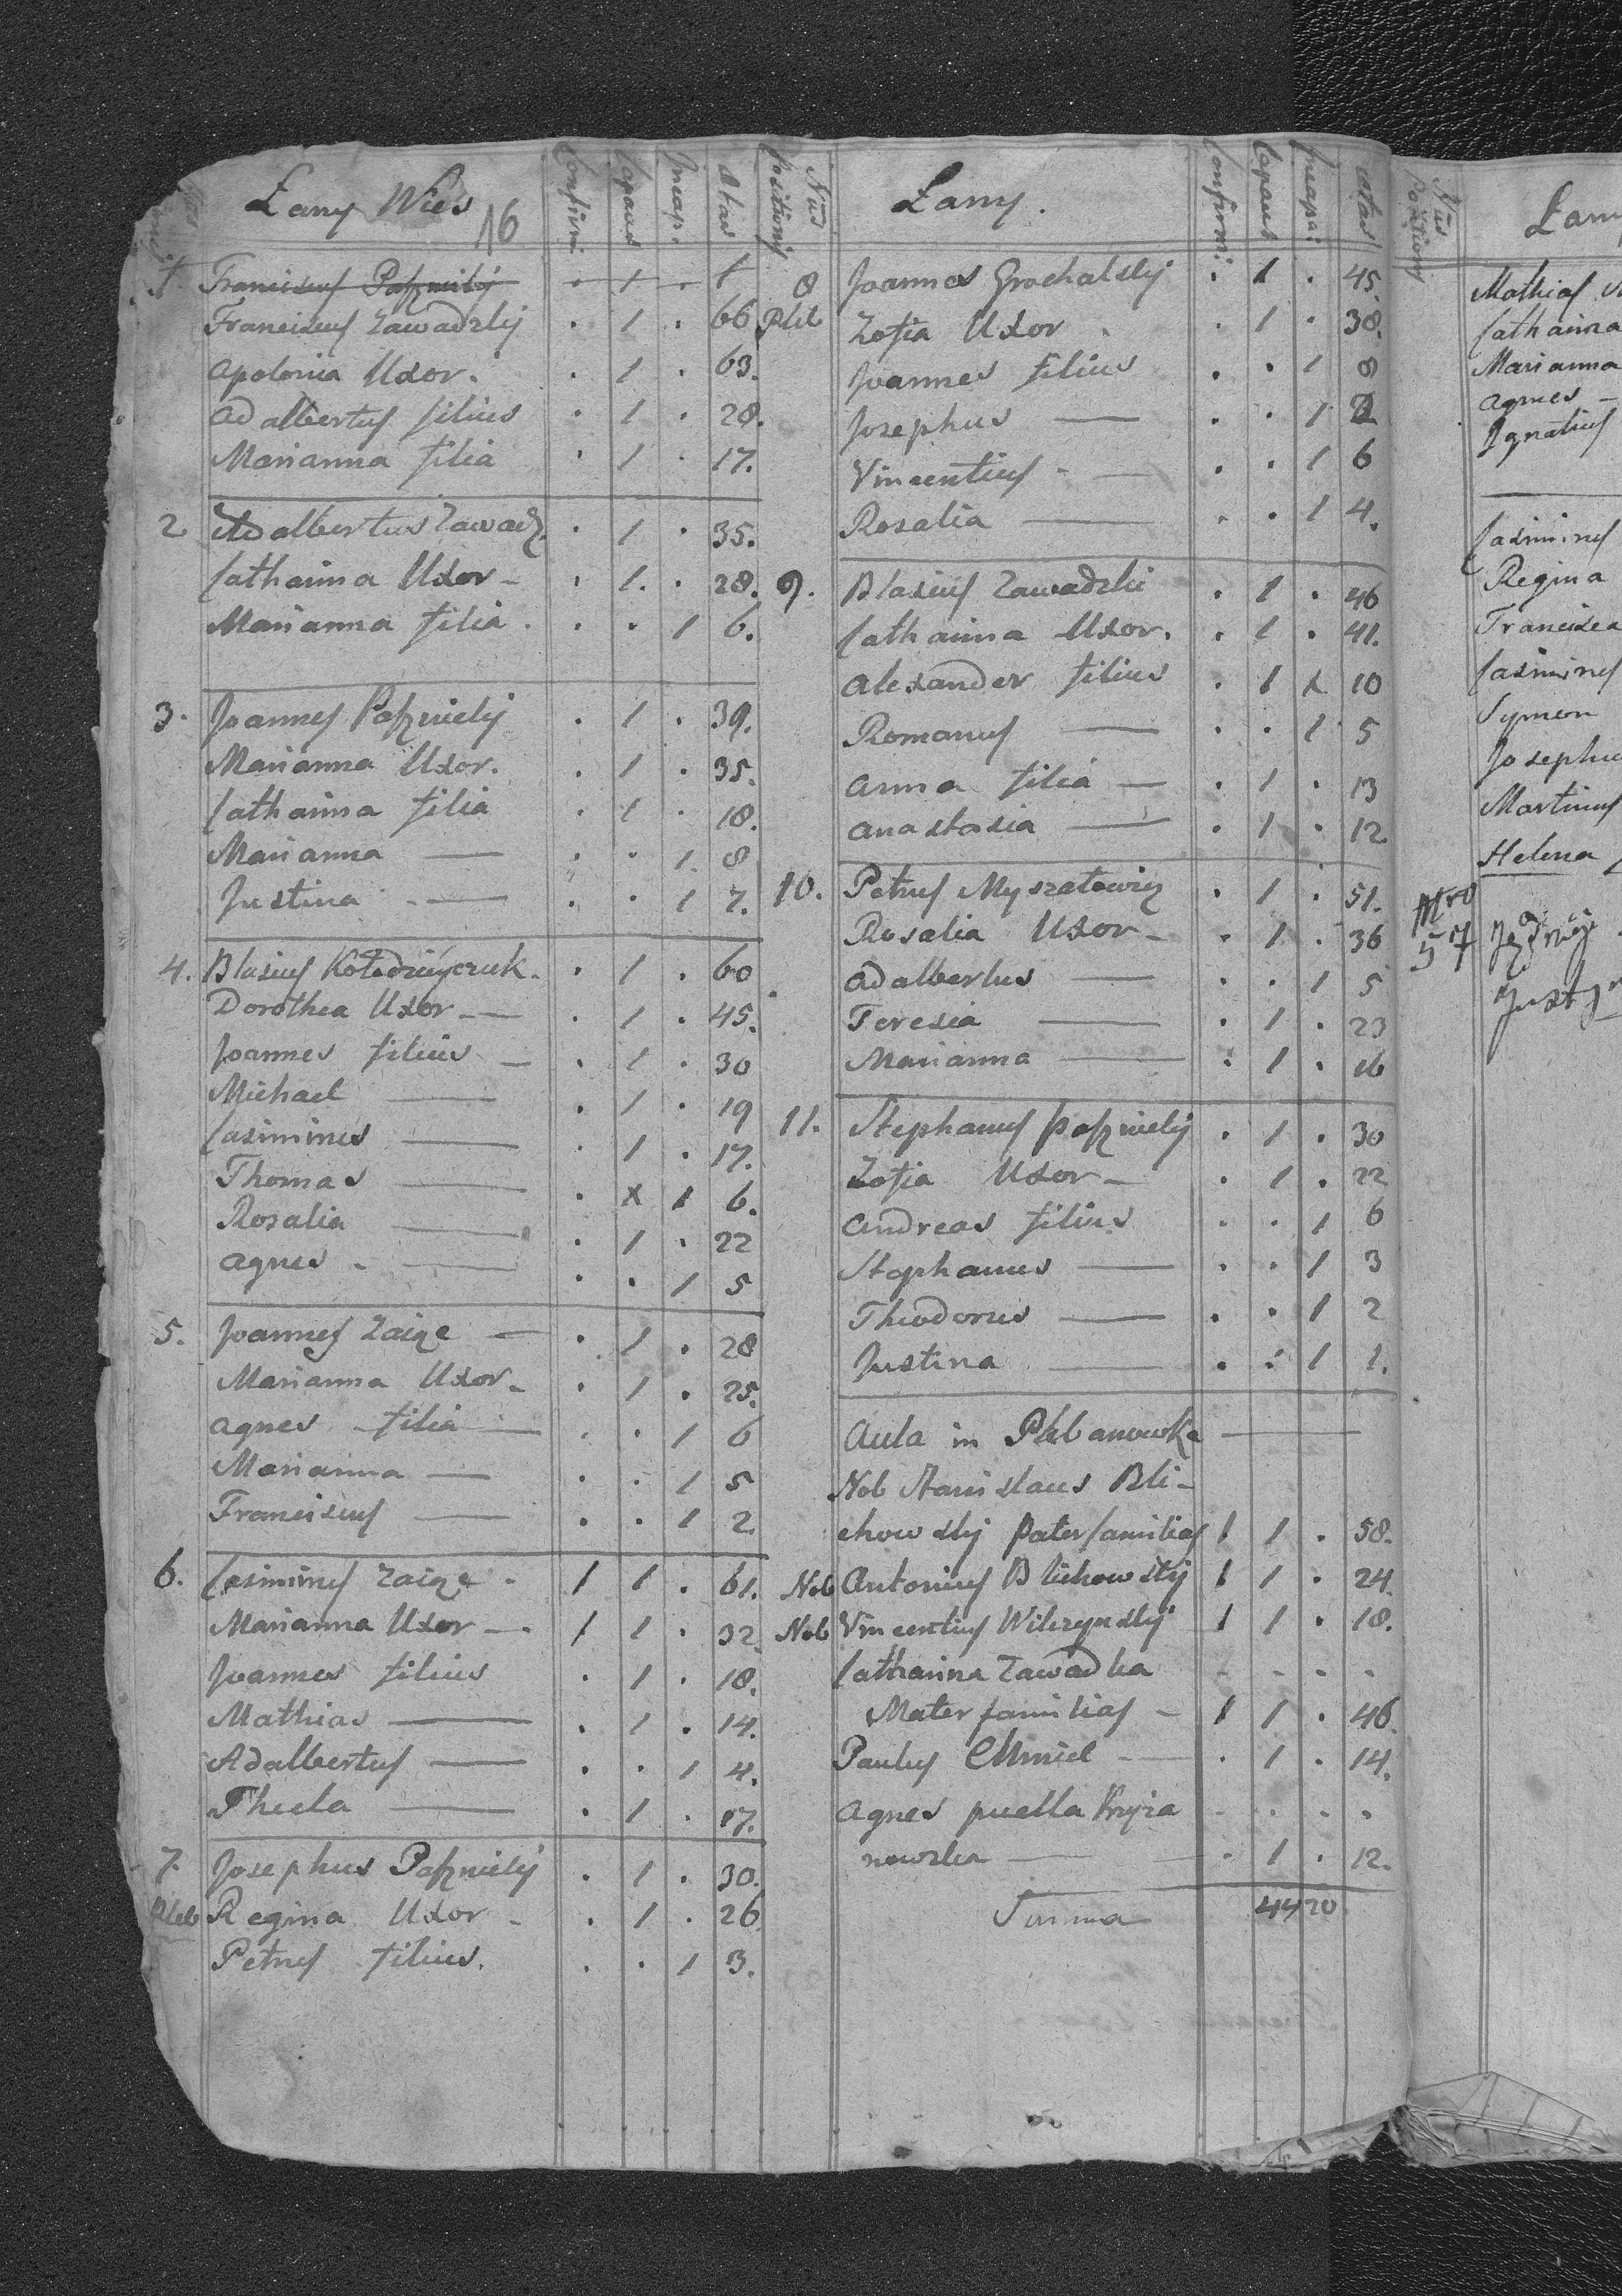 Łany Wies 16 Confirm: Capaces Incap. Ætas
1 Franciscus Pasznikij . 1 .
Franciscus Zawadzkij . 1 . 66
Apolonia Uxor. . 1 . 63.
Adalbertus filius . 1 . 28.
Marianna filia . 1 . 17.
2 Adalbertus Zawadz. . 1 . 35.
Catharina Uxor - . 1. . 28.
Marianna filia . . . 1 6.
3. Joannes Paszniclij . 1 . 39.
Marianna Uxor. . 1 . 35.
Catharina filia . 1 . 18.
Marianna — . . 1 8
Justina — . . 1 7.
4. Blasius . 1 . 60
Dorothea Uxor - . 1 . 45.
Joannes filius — . 1 . 30
Michael — . 1 . 19
Casimirus — . 1 . 17.
Thomas — . x 1 6.
Rosalia — . 1 . 22
Agnes - — . . 1 5
5. Joannes Zaize — . 1 . 28
Marianna Uxor - . 1 . 25.
Agnes filia — . . 1 6
Marianna — . . 1 5
Franciscus — . . 1 2
6. Casimirus Zaize . 1 1 . 61.
Marianna Uxor - 1 1 . 32
Joannes filius . 1 . 18.
Mathias — . 1 . 14.
Adalbertus — . . 1 4.
Thecla — . 1 . 17.
7. Josephus Paszniclij . 1 . 30.
Pleb Regina Uxor - . 1 . 26
Petrus filius. . . 1 3.
Nus Positionis Łany. Confirm: Capaces Incapa: Ætas
8 Joannes Grochalskij . 1 . 45.
Pleb Zofia Uxor . . 1 . 38.
Joannes filius . . 1 8
Josephus — . . 1 2
Vincentius - — . . 1 6
Rosalia — . . 1 4.
9. Blasius Zawadzki . 1 . 46
Catharina Uxor. . 1 . 41.
Alexander filius . 1 x 10
Romanus — . . 1 5
Anna filia — . 1 . 13
Anastasia — . 1 . 12
10. Petrus Myszatowicz . 1 . 51.
Rosalia Uxor - . 1 . 36
Adalbertus — . . 1 5
Teresia — . 1 . 23
Marianna — . 1 . 16
11. Stephanus Paszniclij . 1 . 30
Zofia Uxor - . 1 . 22
Andreas filius . . 1 6
Stephanus — . . 1 3
Theodorus — . . 1 2
Justina — . . 1 1.
Aula in Plebanowka —
Nob Stanislaus Bli-
chowskij Paterfamilias 1 1 . 58.
Nob Antonius Blichowskij 1 1 . 24.
Nob Vincentius Wilczynskij 1 1 . 18.
Catharina Zawadka - - - -
Materfamilias - 1 1 . 46.
Paulus Chmiel - — . 1 . 14.
Agnes puella Kryza . . . .
nowska — . 1 . 12.
Summa 44 20
Nus Positionis Łan
Mathias
Catharina
Marianna
Agnes -
Ignatius
Casimirus
Regina
Francisca
Casimirus
Symeon
Josephu
Martinus
Helena
Nro
57 Jędrzej
Justy